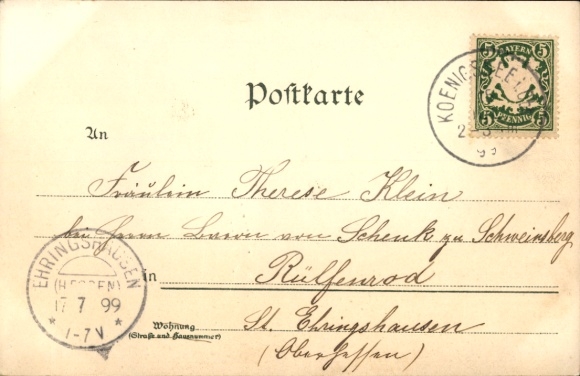 5 BAYERN 5
5 PFENNIG 5
Postkarte
An
Fräulein Therese Klein
bei Herrn Baron von Schenk zu Schweinsberg
in Rülfenrod
Wohnung
(Straße und Hausnummer)
St. Ehringshausen
(Oberhessen)
EHRINGSHAUSEN
(HESSEN)
17 7 99
* 1-7 V *
99